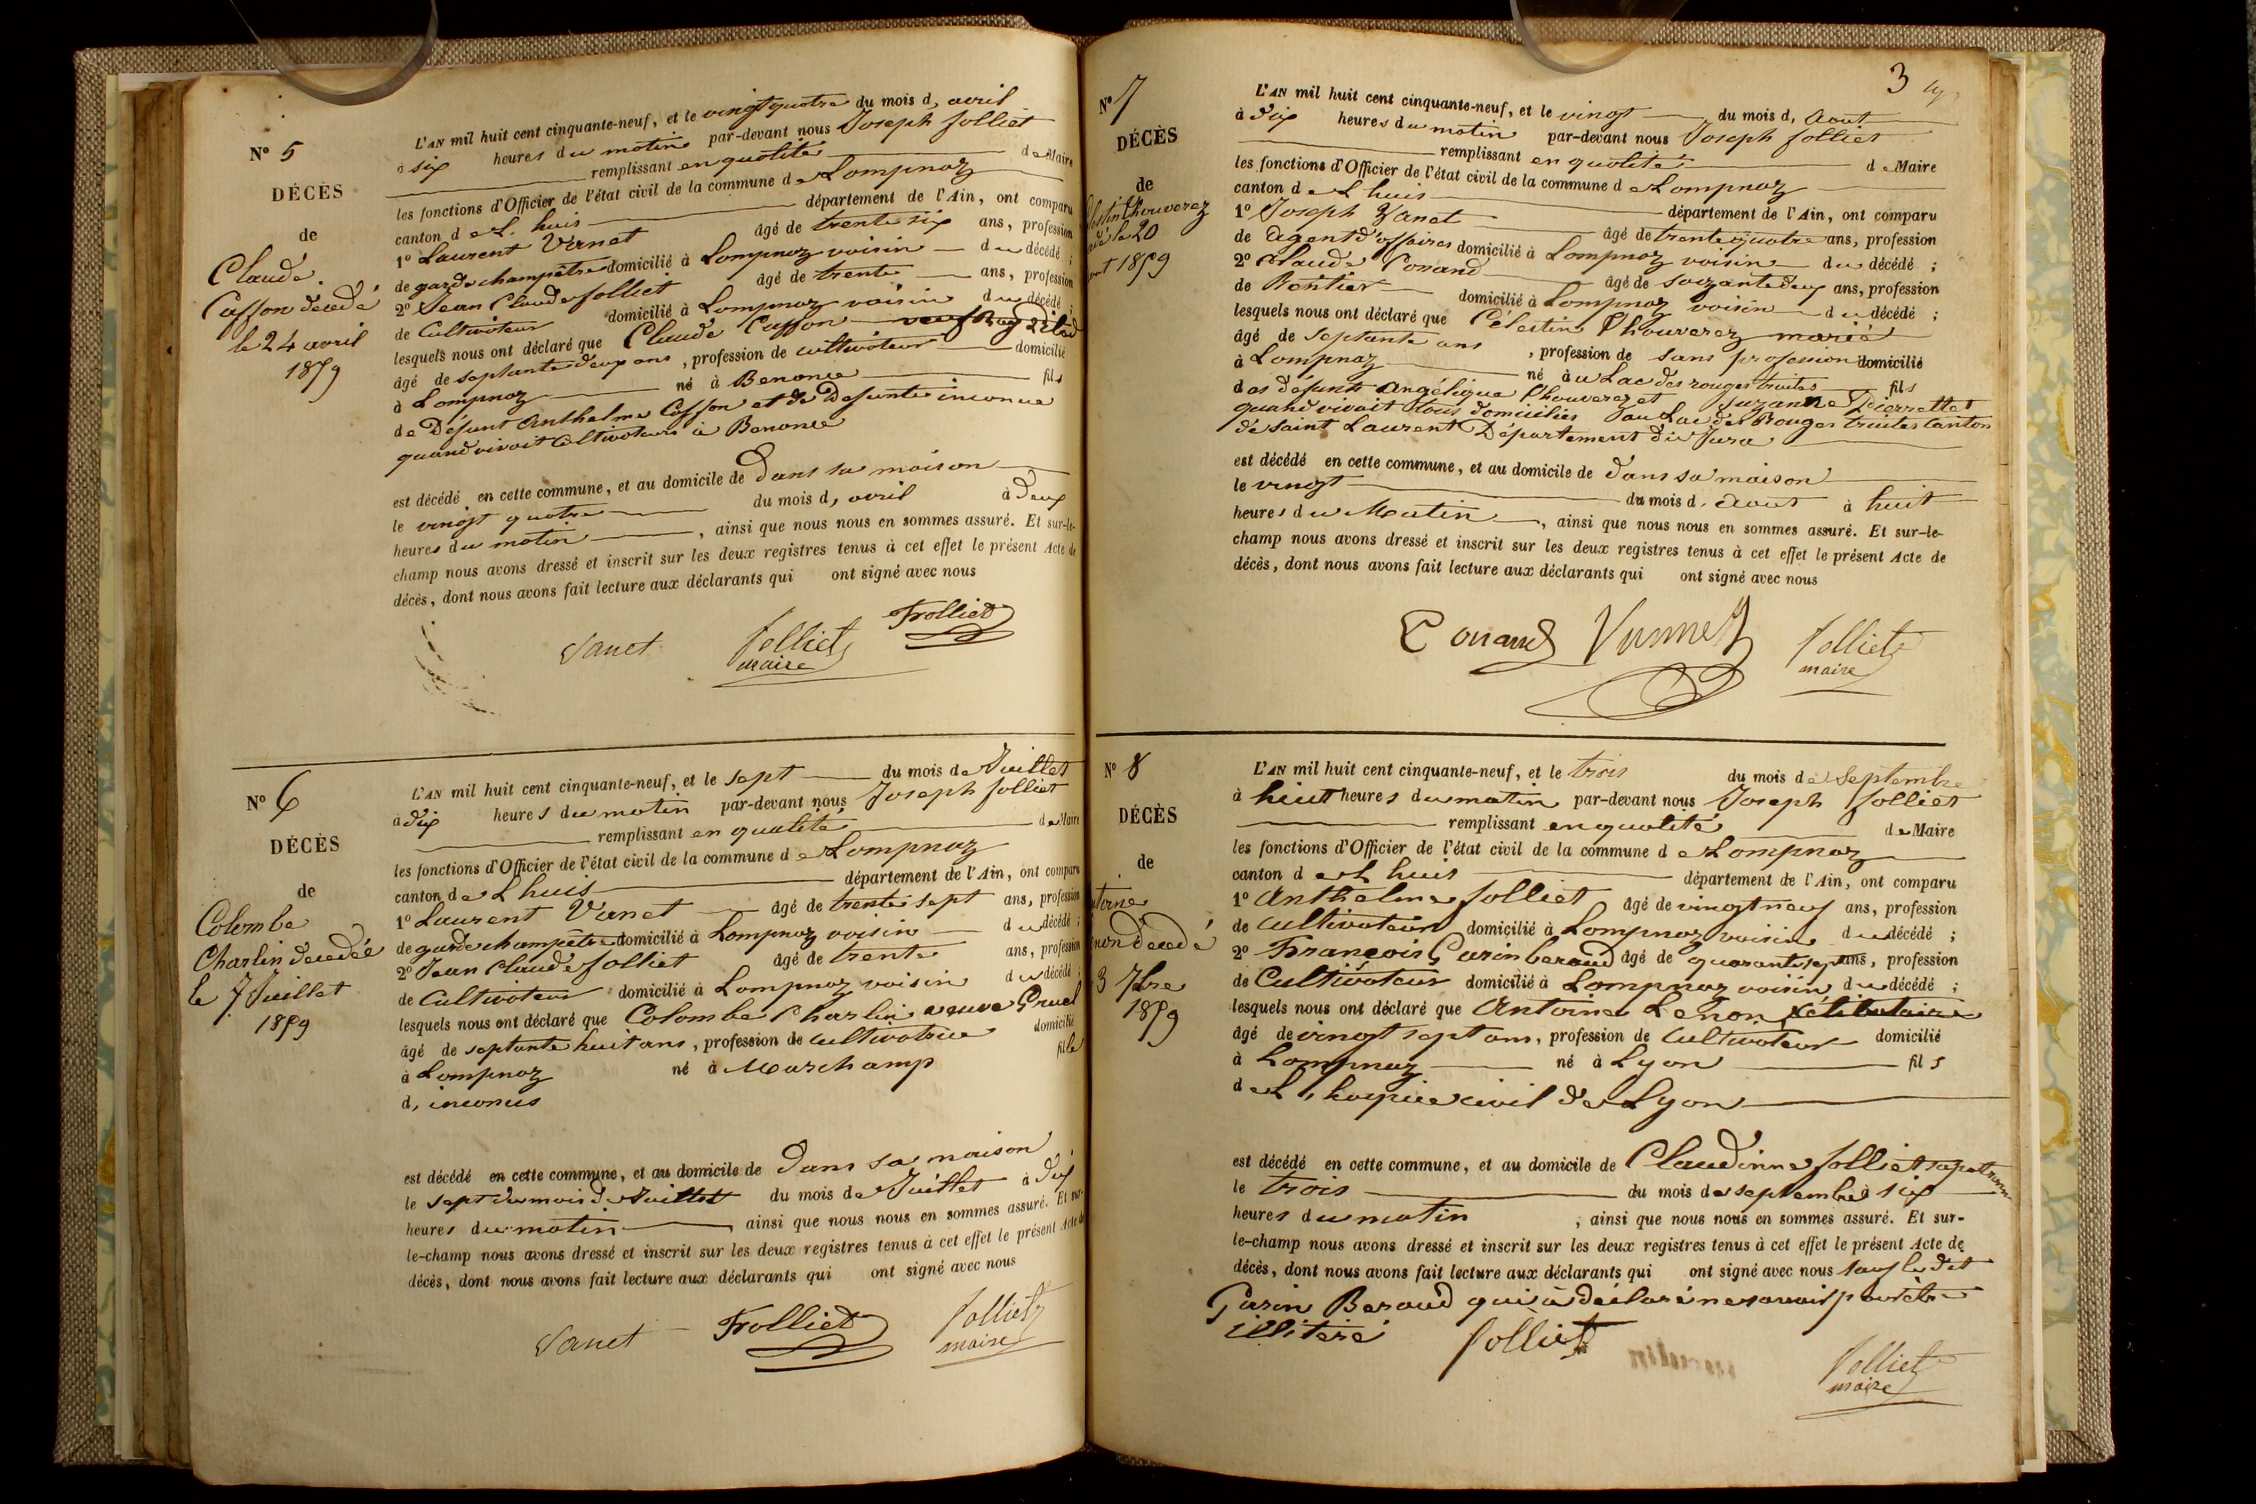 N° 5
DÉCÈS
de
Claude
Casson décédé
le 24 avril
1859
L'AN mil huit cent cinquante-neuf, et le vingt quatre du mois d, avril
à six heures du matin par-devant nous Joseph Jolliet
remplissant en qualité de Maire
les fonctions d'Officier de l'état civil de la commune de Lompnaz
canton de L'huis département de l'Ain, ont comparu
1° Laurent Vanet âgé de trente six ans, profession
de garde champêtre domicilié à Lompnaz voisin du décédé ;
2° Jean Claude Jolliet âgé de trente ans, profession
de Cultivateur domicilié à Lompnaz voisin du décédé ;
lesquels nous ont déclaré que Claude Casson veuf
âgé de septante deux ans, profession de cultivateur domicilié
à Lompnaz né à Benonce fils
de Défunt Anthelme Casson et de Defunte inconue
quand vivoit Cultivateurs à Benonce
est décédé en cette commune, et au domicile de Dans sa maison
le vingt quatre du mois d, avril à Deux
heures du matin, ainsi que nous nous en sommes assuré. Et sur-le-
champ nous avons dressé et inscrit sur les deux registres tenus à cet effet le présent Acte de
décès, dont nous avons fait lecture aux déclarants qui ont signé avec nous
Vanet Jolliet Frolliet
maire
N° 6
DÉCÈS
de
Colombe
Charlin décédée
le 7 Juillet
1859
L'AN mil huit cent cinquante-neuf, et le sept du mois de Juillet
à dix heures du matin par-devant nous Joseph Jolliet
remplissant en qualité de Maire
les fonctions d'Officier de l'état civil de la commune de Lompnaz
canton de Lhuis département de l'Ain, ont comparu
1° Laurent Vanet âgé de trente sept ans, profession
de garde champêtre domicilié à Lompnaz voisin du décédé ;
2° Jean Claude Jolliet âgé de trente ans, profession
de Cultivateur domicilié à Lompnaz voisin du décédé ;
lesquels nous ont déclaré que Colombe Charlin veuve Pruel
âgé de septante huit ans, profession de cultivatrice domicilié
à Lompnaz né à Marchamp fille
d, inconus
est décédé en cette commune, et au domicile de Dans sa maison
le sept du mois de Juillet du mois de Juillet à dix
heures du matin ainsi que nous nous en sommes assuré. Et sur-
le-champ nous avons dressé et inscrit sur les deux registres tenus à cet effet le présent Acte de
décès, dont nous avons fait lecture aux déclarants qui ont signé avec nous
Vanet Frolliet Jolliet
maire
3
N° 7
DÉCÈS
de
lestin Thouverez
dé le 20
out 1859
L'AN mil huit cent cinquante-neuf, et le vingt du mois d, Aout
à dix heures du matin par-devant nous Joseph Jolliet
remplissant en qualité de Maire
les fonctions d'Officier de l'état civil de la commune de Lompnaz
canton de Lhuis département de l'Ain, ont comparu
1° Joseph Vanet âgé de trente quatre ans, profession
de agent d'affaires domicilié à Lompnaz voisin du décédé ;
2° Claude Conand âgé de soizante deux ans, profession
de Rentier domicilié à Lompnaz voisin du décédé ;
lesquels nous ont déclaré que Célestin Thouverez marié
âgé de septante ans, profession de sans profession domicilié
à Lompnaz né au Lac des rouges truites fils
des défunts Angélique Thouverez et Suzanne Pierrettet
quand vivoit tous domiciliés au Lac des Rouges truites Canton
de saint Laurent Département du Jura
est décédé en cette commune, et au domicile de Dans sa maison
le vingt du mois d, aout à huit
heures du Matin, ainsi que nous nous en sommes assuré. Et sur-le-
champ nous avons dressé et inscrit sur les deux registres tenus à cet effet le présent Acte de
décès, dont nous avons fait lecture aux déclarants qui ont signé avec nous
Conand Jolliet
maire
N° 8
DÉCÈS
de
toine
non décédé
3 7bre
1859
L'AN mil huit cent cinquante-neuf, et le trois du mois de Septembre
à huit heures du matin par-devant nous Joseph Jolliet
remplissant en qualité de Maire
les fonctions d'Officier de l'état civil de la commune de Lompnaz
canton de Lhuis département de l'Ain, ont comparu
1° Anthelme Jolliet âgé de vingt neuf ans, profession
de cultivateur domicilié à Lompnaz voisin du décédé ;
2° François Gurin beraud âgé de quarante sept ans, profession
de Cultivateur domicilié à Lompnaz voisin du décédé ;
lesquels nous ont déclaré que Antoine Lenon célibataire
âgé de vingt sept ans, profession de Cultivateur domicilié
à Lompnaz né à Lyon fils
de L'hospice civil de Lyon
est décédé en cette commune, et au domicile de Claudinne Jolliet sa patronne
le trois du mois de septembre à six
heures du matin, ainsi que nous nous en sommes assuré. Et sur-
le-champ nous avons dressé et inscrit sur les deux registres tenus à cet effet le présent Acte de
décès, dont nous avons fait lecture aux déclarants qui ont signé avec nous sauf le dit
Gurin Beraud qui a déclaré ne savoir pour être
illiteré Jolliet Jolliet
maire